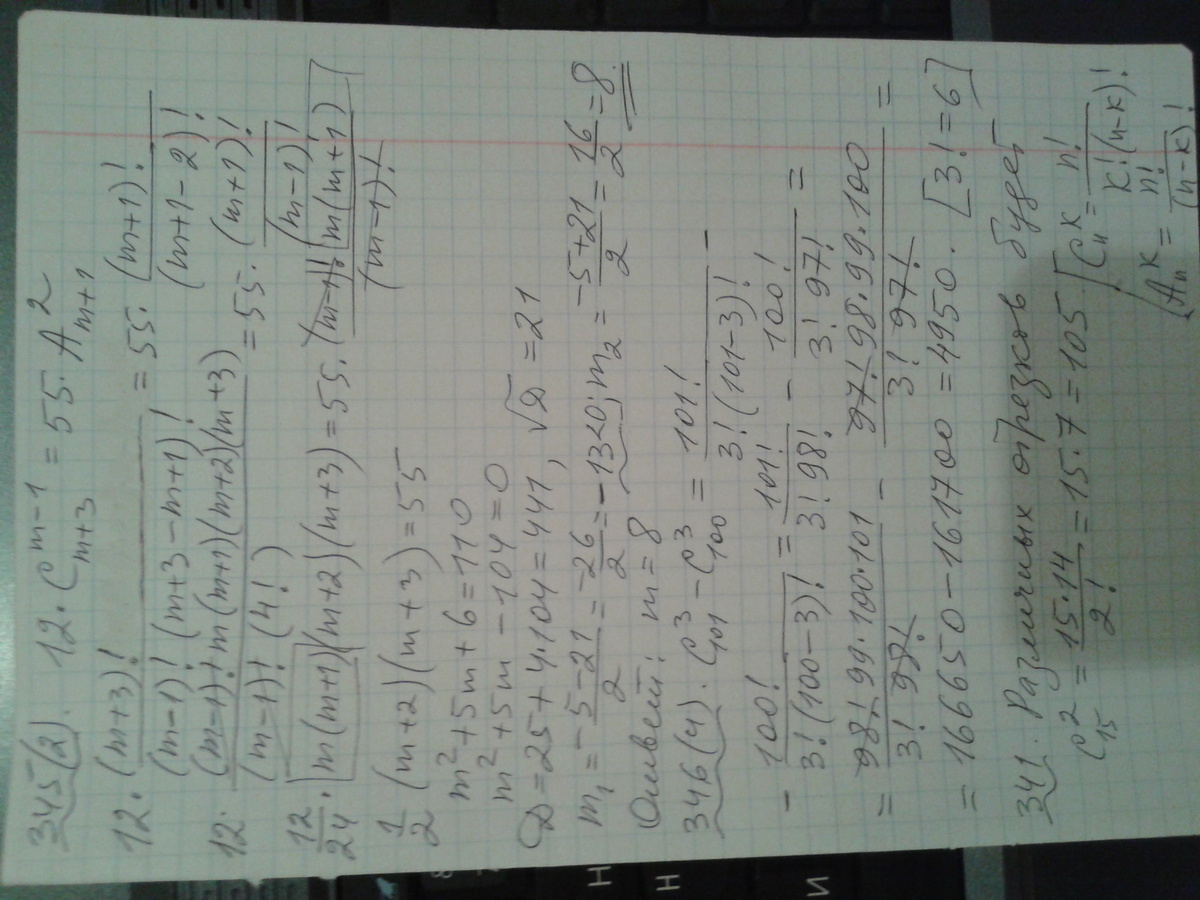 345(2). 12·C_{m+3}^{m-1} = 55·A_{m+1}^{2}
12·(m+3)!/((m-1)!(m+3-m+1)!) = 55·(m+1)!/(m+1-2)!
12·(m-1)!·m(m+1)(m+2)(m+3)/((m-1)!(4!)) = 55·(m+1)!/(m-1)!
12/24·m(m+1)(m+2)(m+3) = 55·(m-1)!m(m+1)/(m-1)!
1/2(m+2)(m+3) = 55
m²+5m+6=110
m²+5m-104=0
D=25+4·104=441, √D=21
m₁=(-5-21)/2=-26/2=-13<0; m₂=(-5+21)/2=16/2=8.
Ответ: m=8
346(4). C_{101}^{3}-C_{100}^{3}=101!/(3!(101-3)!) -
- 100!/(3!(100-3)!) = 101!/(3!98!) - 100!/(3!97!) =
= 98!99·100·101/(3!98!) - 97!98·99·100/(3!97!) =
= 166650-161700=4950. [3!=6]
341. Различных отрезков будет
C_{15}^{2} = 15·14/2! = 15·7=105 [C_n^k=n!/(k!(n-k)!)
[A_n^k=n!/(n-k)!
Н
Н
И